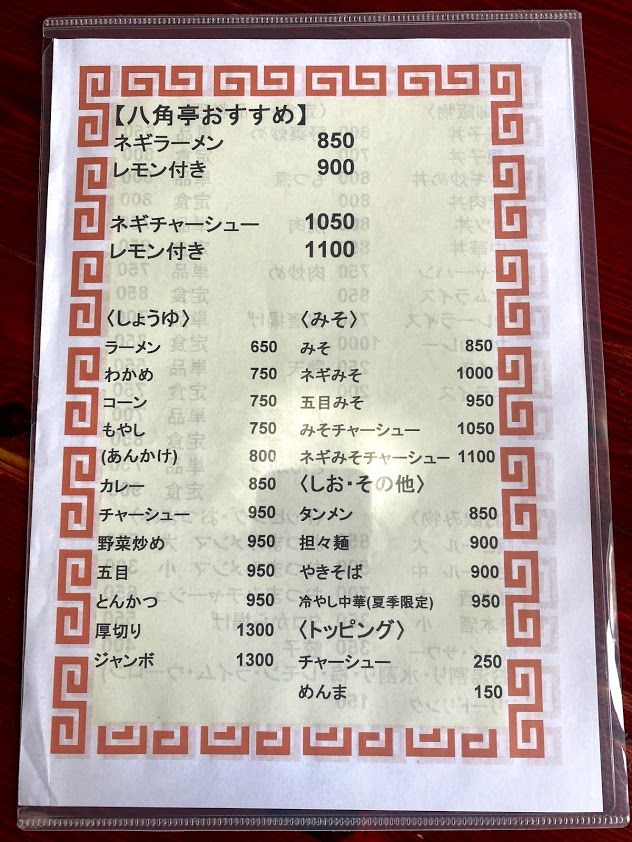 【八角亭おすすめ】
ネギラーメン 850
レモン付き 900
ネギチャーシュー 1050
レモン付き 1100
〈しょうゆ〉
ラーメン 650
わかめ 750
コーン 750
もやし 750
(あんかけ) 800
カレー 850
チャーシュー 950
野菜炒め 950
五目 950
とんかつ 950
厚切り 1300
ジャンボ 1300
〈みそ〉
みそ 850
ネギみそ 1000
五目みそ 950
みそチャーシュー 1050
ネギみそチャーシュー 1100
〈しお・その他〉
タンメン 850
担々麺 900
やきそば 900
冷やし中華(夏季限定) 950
〈トッピング〉
チャーシュー 250
めんま 150